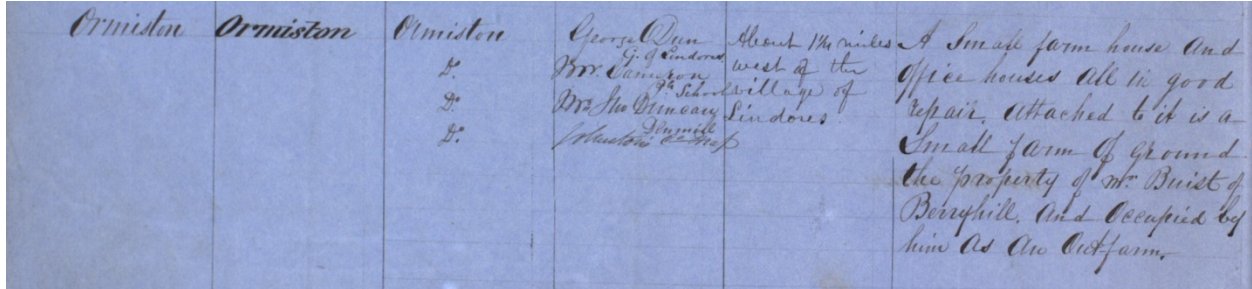 Ormiston
Ormiston
Ormiston
Do.
Do.
Do.
George Dun
G. of Lindores
Mr. Cameron
Do. School
Mr. Jno Duncan
Denmill
Johnston's Co Map
About 1¼ miles
west of the
village of
Lindores.
A Small farm house and
Office houses all in good
repair. attached to it is a
Small farm of ground
the property of Mr. Buist of
Berryhill. And Occupied by
him As An Outfarm.